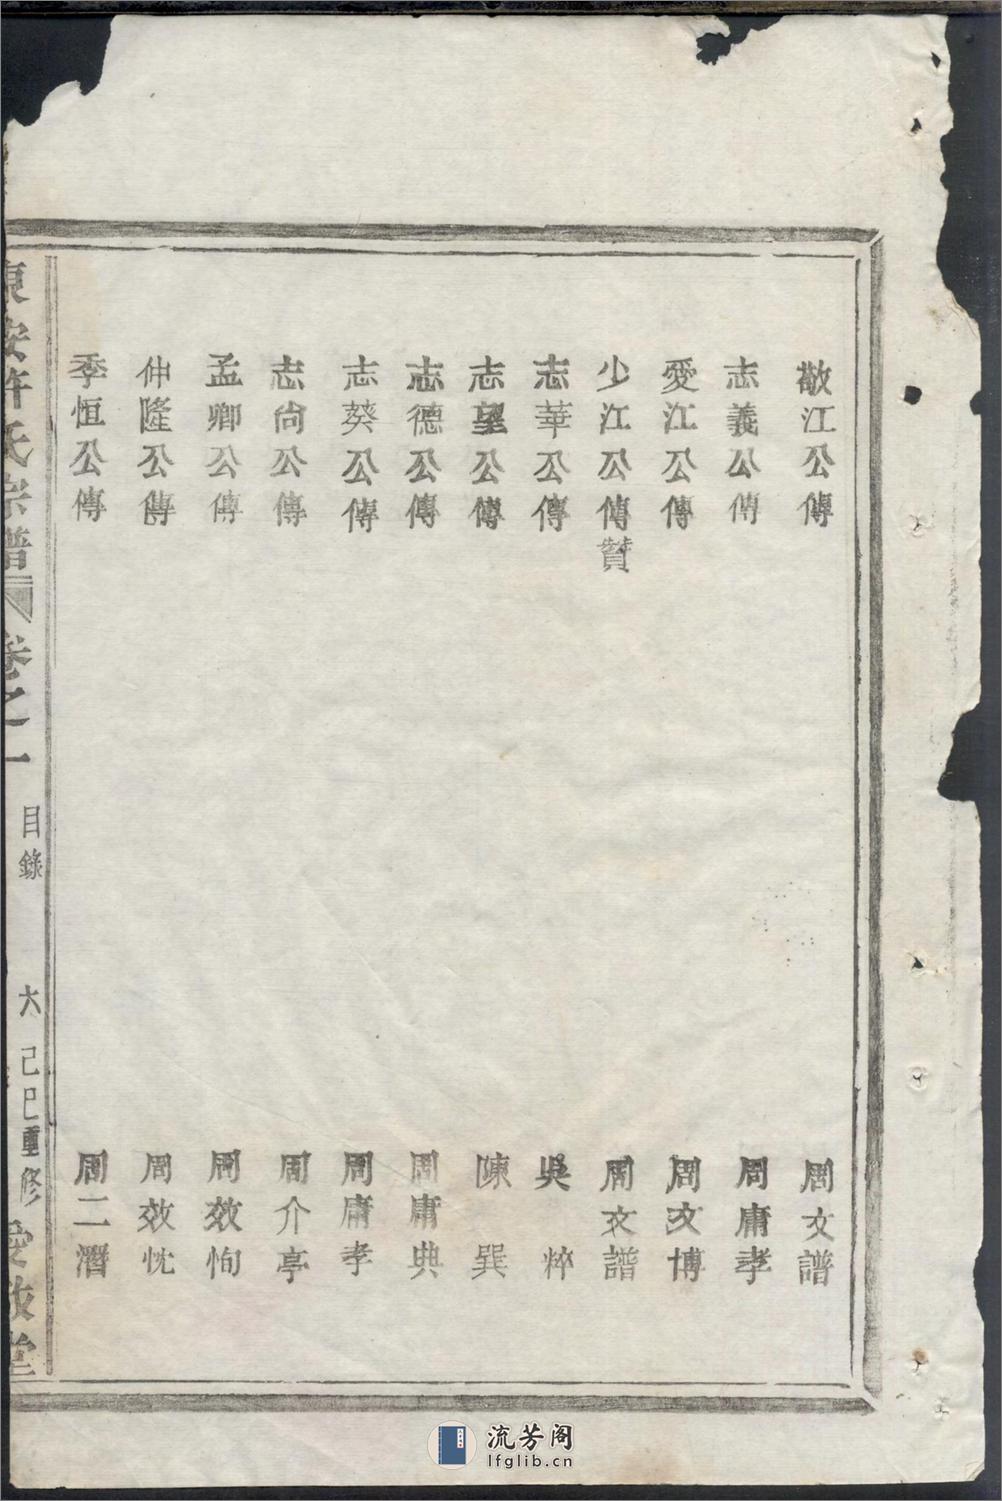 敬江公傳 周文譜
志義公傳 周庸孝
愛江公傳 周文博
少江公傳贊 周文譜
志華公傳 吳粹
志望公傳 陳巽
志德公傳 周庸典
志葵公傳 周庸孝
志尚公傳 周介亭
孟卿公傳 周效恂
仲隆公傳 周效忱
季恒公傳 周二潛
東安許氏宗譜 卷之一 目錄 六 己巳重修 愛敬堂
流芳阁
lfglib.cn